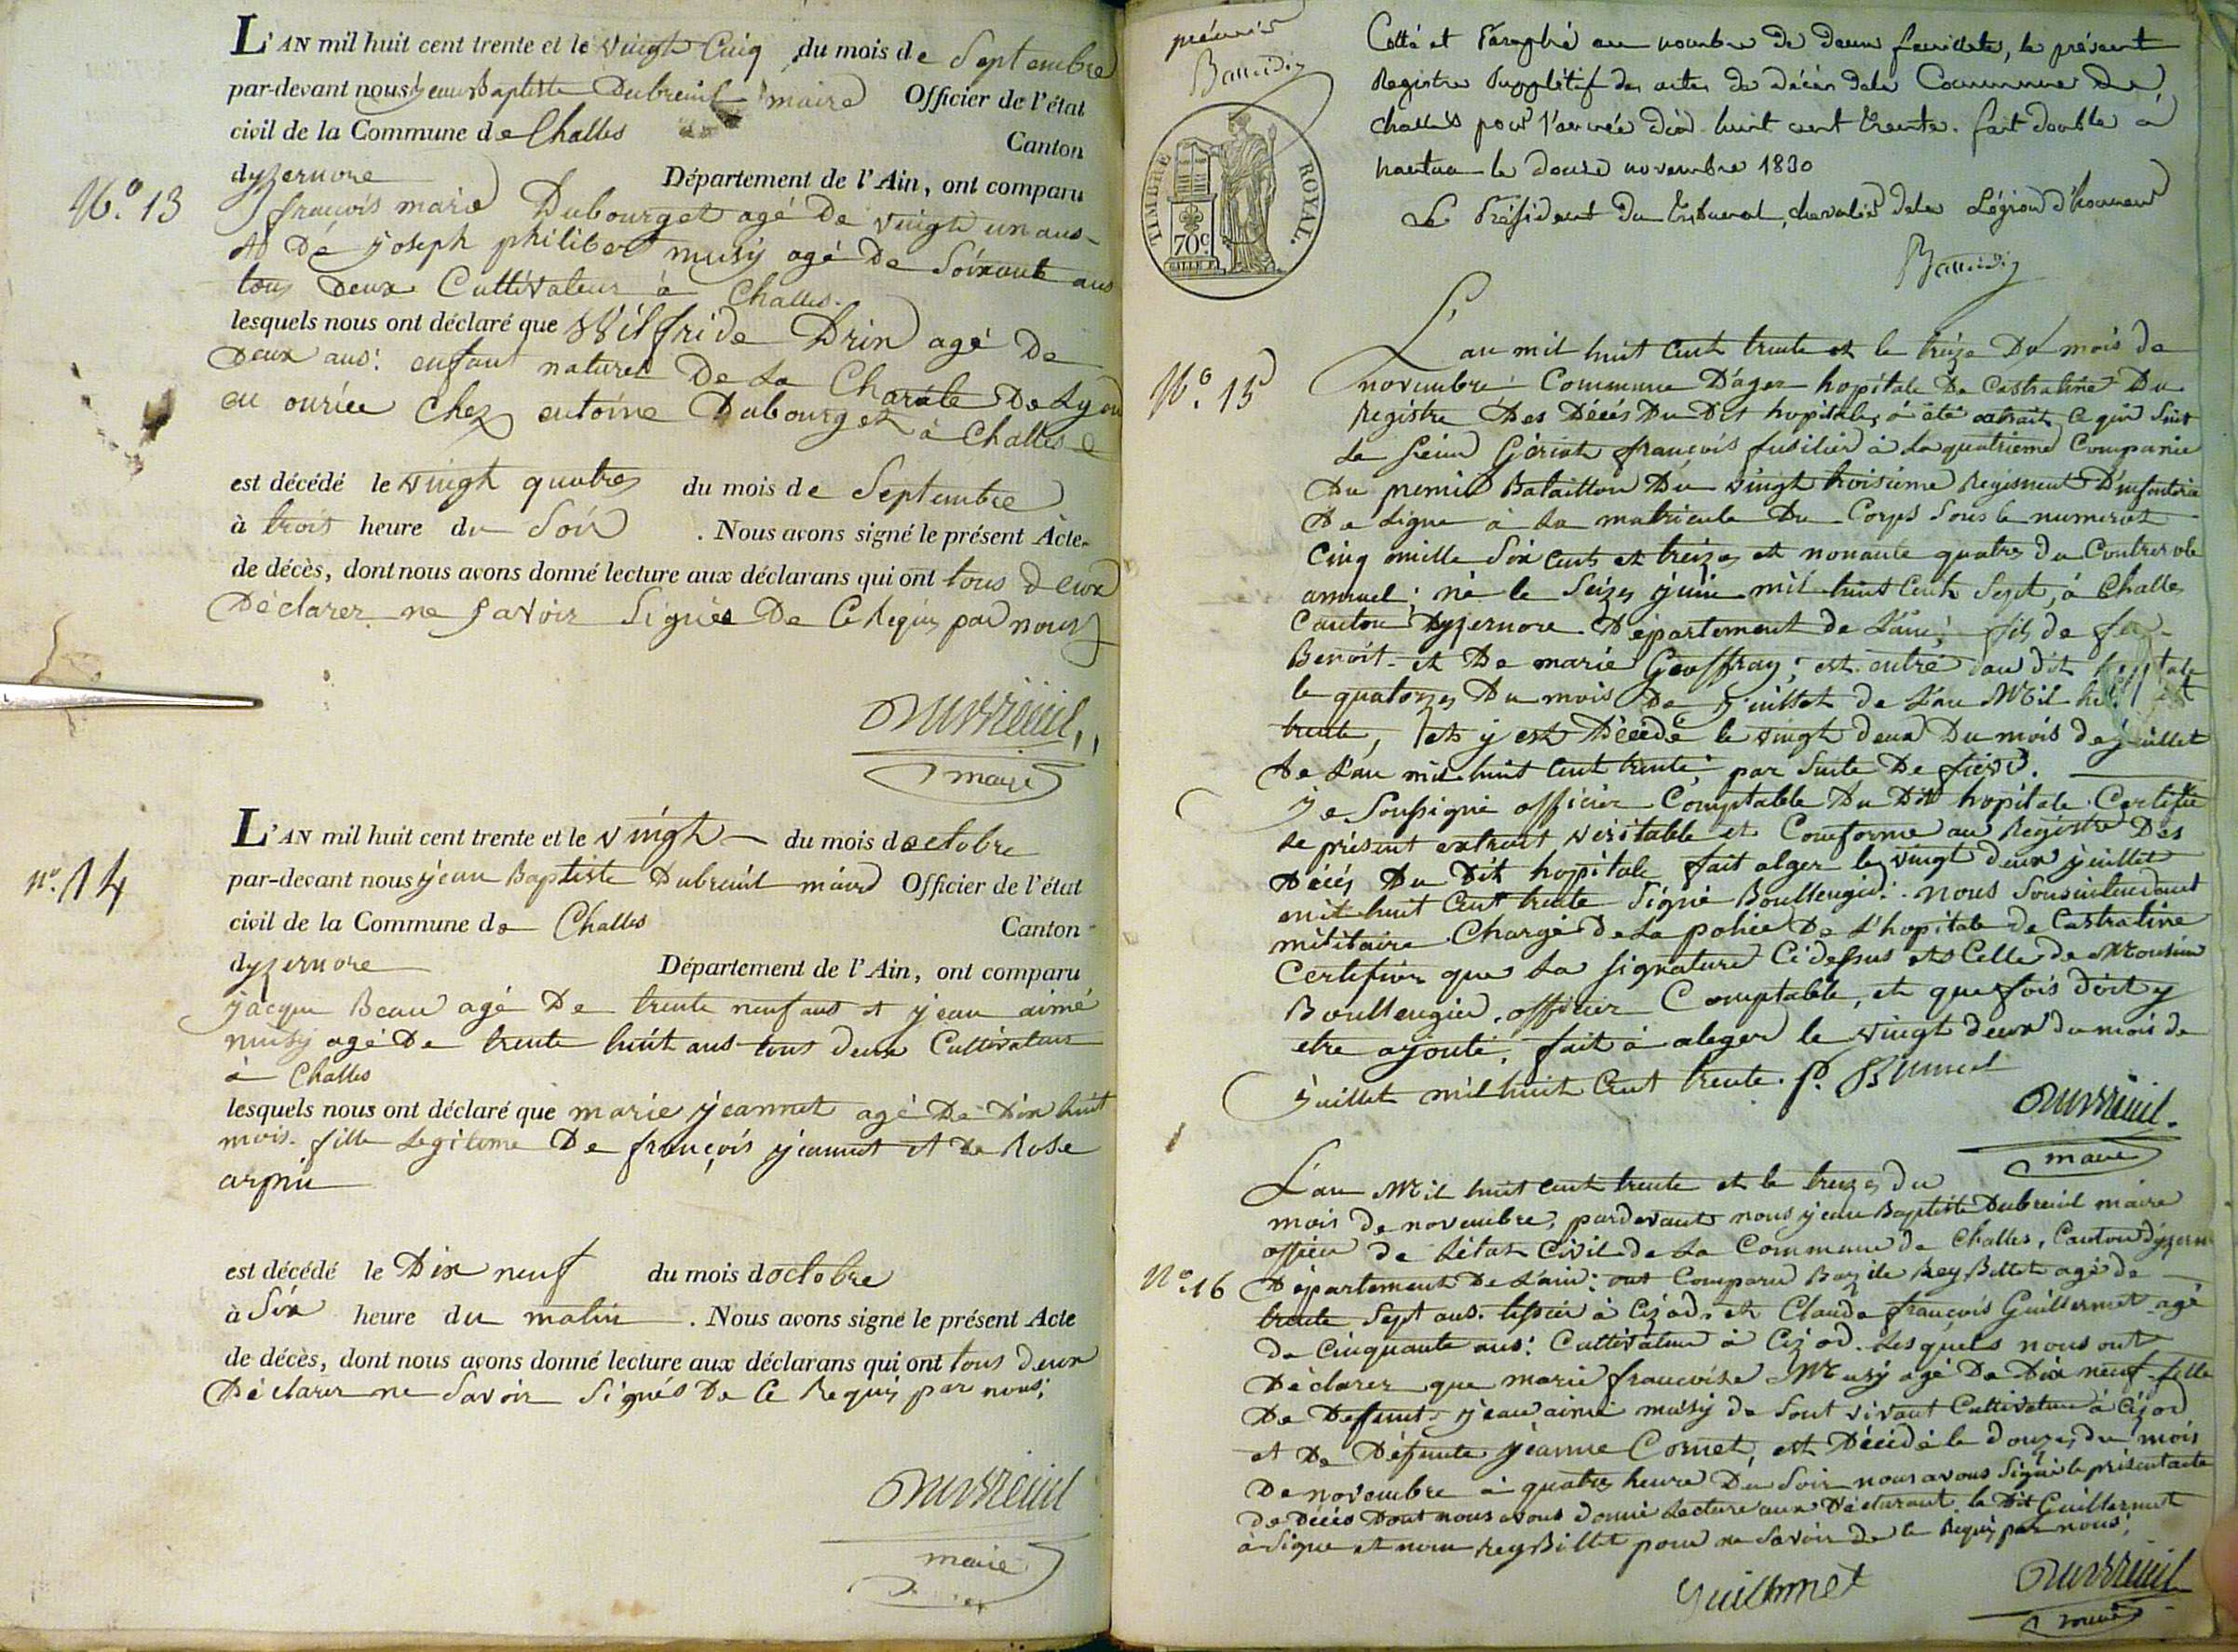 L'AN mil huit cent trente et le vingt Cinq du mois de Septembre
par-devant nous jean Baptiste Dubreuil maire Officier de l'état
civil de la Commune de Challes Canton
dyzernore Département de l'Ain, ont comparu
N.º 13
françois marie Dubourget agé De vingt un ans
et De joseph philibert musy agé De Soixante ans
tous Deux Cultivateur à Challes.
lesquels nous ont déclaré que Wilfride Drin agé De
Deux ans: enfant naturel De La Charité De Lyon
en ourice Chez antoine Dubourget à Challes
est décédé le vingt quatre du mois de Septembre
à trois heure du Soir . Nous avons signé le présent Acte
de décès, dont nous avons donné lecture aux déclarans qui ont tous deux
Déclarer ne Savoir Signés De Ce Requis par nous
Dubreuil,,
maire
L'AN mil huit cent trente et le vingt du mois doctobre
nº. 14
par-devant nous jean Baptiste Dubreuil maire Officier de l'état
civil de la Commune de Challes Canton
dyzernore Département de l'Ain, ont comparu
jacque Beau agé De trente neuf ans et jean aimé
musy agé De trente huit ans tous deux Cultivateur
à Challes
lesquels nous ont déclaré que marie jeannet agé De Dix huit
mois. fille Legitime De françois jeannet et De Rose
arpin
est décédé le Dix neuf du mois doctobre
à Six heure du matin . Nous avons signé le présent Acte
de décès, dont nous avons donné lecture aux déclarans qui ont tous deux
Déclarer ne Savoir Signés De Ce Requis par nous;
Dubreuil
maire
premier
Baudin
TIMBRE ROYAL.
70c
Cotté et Paraphé au nombre de deux feuillets, le présent
Registre Supplétif des actes de décès dela Commune de
challes pour l'année dix huit cent trente. fait double à
nantua le douze novembre 1830
Le Président du tribunal, chevalier dela Légion d'honneur
Baudin
L'an mil huit Cent trente et le treize Du mois de
N.º 15
novembre: Commune D'ager hopitale De Castratine Du
Registre Des Décés Du Dit hopitale, à été extrait Ce qui Suit
Le Sieur Gériat françois fusilier à La quatrieme Companie
Du premier Bataillon Du vingt troisieme Regiment D'enfonterie
De Ligne à La matricule Du Corps Sous le numerot
Cinq mille Six Cents et treize et nonante quatre du Controvole
annuel: né le Seize juin mil huit Cent Sept, à Challes
Canton Dyzernore Département de L'ain; fils de feu
Benoit et De marie Geoffray; est entré au dit hopitale
le quatorze Du mois De Juillet de L'an Mil huit
trente, et y est Décédé le vingt deux Du mois de juillet
De L'an mil huit Cent trente; par Suite De fievre.
Je Soussigné officier Comptable Du Dit hopitale Certifie
Le présent extrait veritable et Conforme au Registre Des
Décés Du Dit hopitale fait alger le vingt deux juillet
mil huit Cent trente Signé Boullengier: nous Sousintendant
militaire Chargé De La police De L'hopitale de Castratine
Certifions que La Signature Cidessus est Celle de Monsieur
Boullengier, officier Comptable, et que fois doit y
etre ajouté. fait à aleger le vingt deux du mois de
juillet mil huit Cent trente. P.
Dubreuil.
maire
L'an Mil huit cent trente et le treize du
mois de novembre, pardevant nous jean Baptiste Dubreuil maire
officier de L'état Civil de La Commune de Challes, Canton dyzern
Nº. 16
Département De L'ain: ont Comparu Bazile Rey Billet agé de
trente Sept ans. tissier à Cizod, et Claude françois Guillermet agé
de Cinquante ans: Cultivateur à Cizod. Lesquels nous ont
Déclarer que marie francoise Musy agé De Dix neuf fille
De Defunt jean aimé musy de Sont vivant Cultivateur à Cizod
et De Défunte jeanne Cornet, est Décédé le douze du mois
De novembre à quatre heure Du Soir nous avons Signé le présent acte
de Décés Dont nous avons Donné Lecture aux Déclarant. le Dit Guillermet
à Signe et non Rey Billet pour ne Savoir de Ce Requis par nous;
Guillermet
Dubreuil
maire